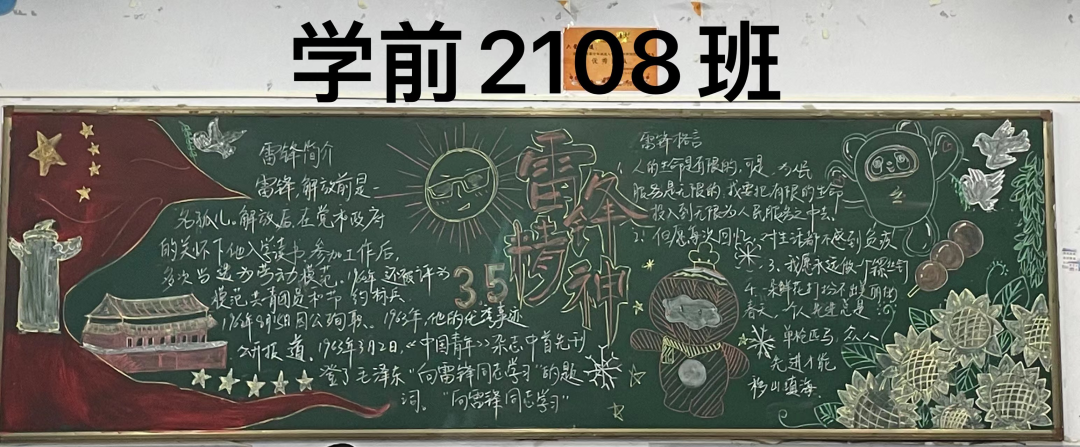 学前2108班
雷锋简介
雷锋,解放前是一
名孤儿。解放后,在党和政府
的关怀下他入学读书,参加工作后,
多次当选为劳动模范。还被评为
模范共青团员和节约标兵
1962年8月15日因公殉职、1963年,他的优秀事迹
公开报道、1963年3月2日,《中国青年》杂志中首先刊
登了毛泽东"向雷锋同志学习"的题
词。"向雷锋同志学习"
雷锋精神
35
雷锋格言
1、人的生命是有限的,可是,为人民
服务是无限的,我要把有限的生命
投入到无限为人民服务之中去。
2、但愿每次回忆,对生活都不感到负疚
3、我愿永远做一个螺丝钉
4、一朵鲜花打扮不出美丽的
春天,个人先进总是
单枪匹马,众人
先进才能
移山填海